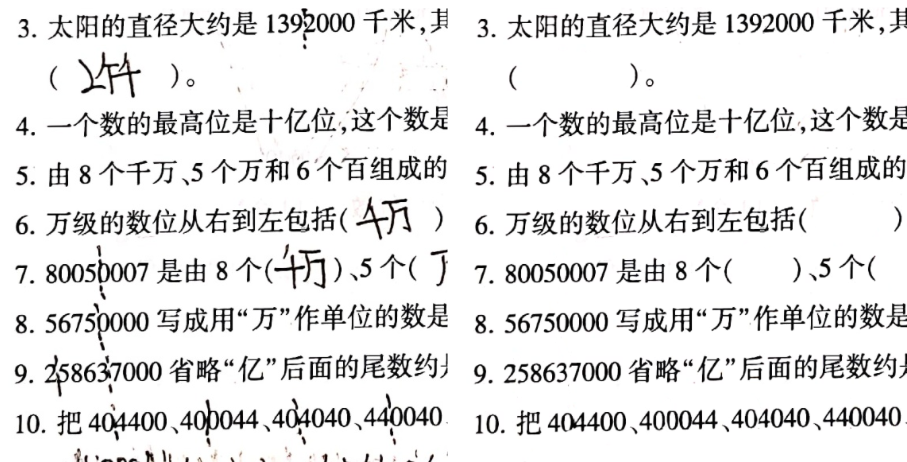 3. 太阳的直径大约是 1392000 千米,其
( 2千 )。
4. 一个数的最高位是十亿位,这个数是
5. 由 8 个千万、5 个万和 6 个百组成的
6. 万级的数位从右到左包括( 千万 )
7. 80050007 是由 8 个(千万)、5 个(
8. 56750000 写成用“万”作单位的数是
9. 258637000 省略“亿”后面的尾数约
10. 把 404400、400044、404040、440040
3. 太阳的直径大约是 1392000 千米,其
( )。
4. 一个数的最高位是十亿位,这个数是
5. 由 8 个千万、5 个万和 6 个百组成的
6. 万级的数位从右到左包括( )
7. 80050007 是由 8 个( )、5 个(
8. 56750000 写成用“万”作单位的数是
9. 258637000 省略“亿”后面的尾数约
10. 把 404400、400044、404040、440040